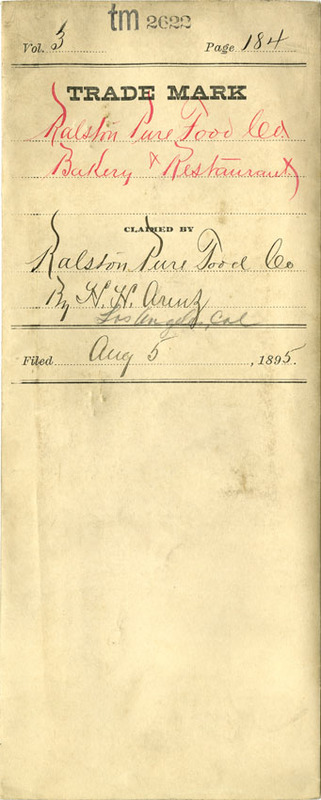 tm 2622
Vol. 3 Page 184
TRADE MARK
Ralston Pure Food Co.
Bakery & Restaurant
CLAIMED BY
Ralston Pure Food Co
By H. H. Arenz
Los Angeles, Cal
Filed Aug 5, 1895.